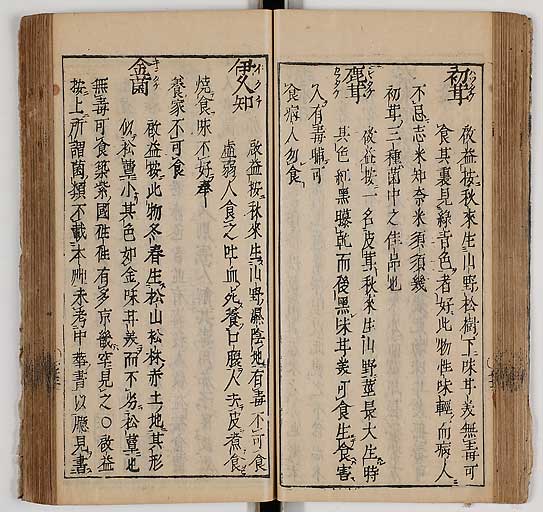 初茸
啟益按秋來生山野松樹下味甘美無毒可
食其裏見綠青色者好此物性味輕而病人
不忌志米知奈米須須幾
初茸三種菌中之佳品也
茸
啟益按一名皮茸秋來生山野莖長大生時
其色紅黑曝乾而後黑味甘美可食生食害
人有毒曬可
食病人勿食
伊久知
啟益按秋來生山野濕陰地有毒不可食
虛弱人食之吐血死餐口腹人去皮煮食
燒食味不好
養家不可食
金菌
啟益按此物冬春生松山松林赤土地其形
似松蕈小其色如金味甘美而不劣松蕈也
無毒可食築紫國在在有多京畿罕見之○啟益
按上所謂菌類不載本艸未考中華書以臆見書